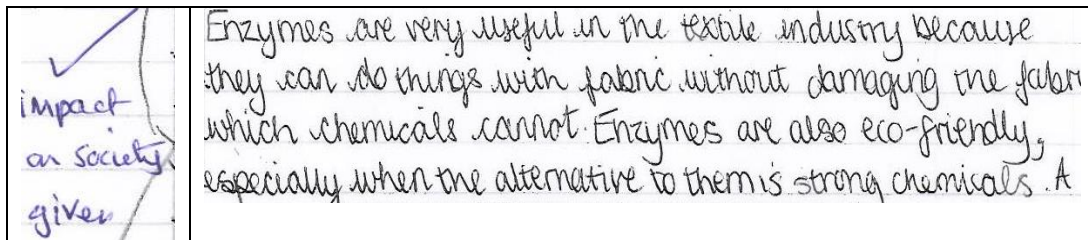 impact
on society
given
Enzymes are very useful in the textile industry because
they can do things with fabric without damaging the fabri
which chemicals cannot. Enzymes are also eco-friendly,
especially when the alternative to them is strong chemicals. A